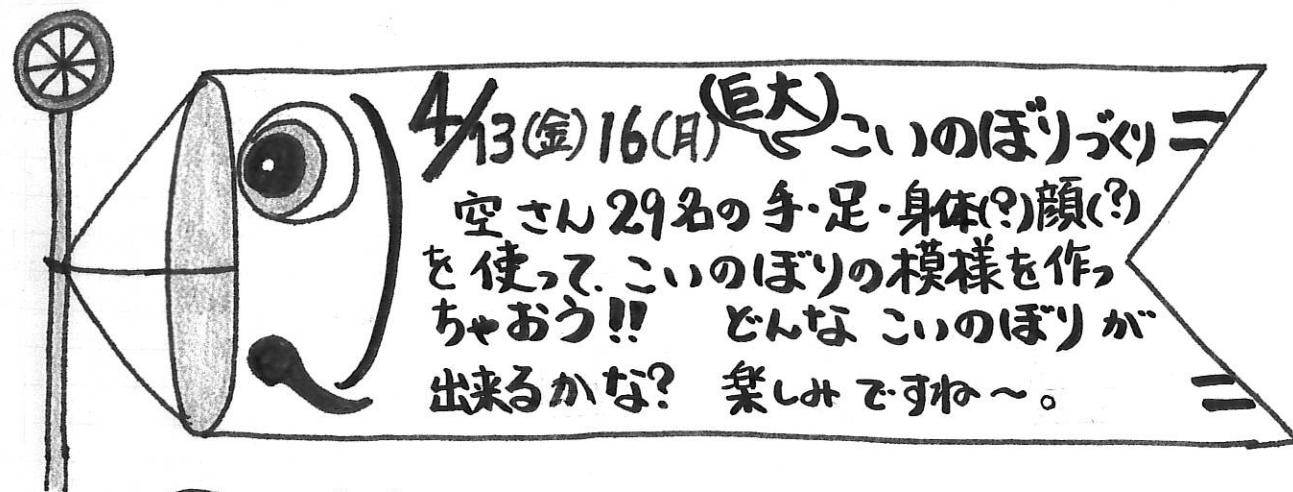 4/13(金)16(月)(巨大)こいのぼりづくり
空さん29名の手・足・身体(?)顔(?)
を使って、こいのぼりの模様を作っ
ちゃおう!! どんなこいのぼりが
出来るかな? 楽しみですね〜。